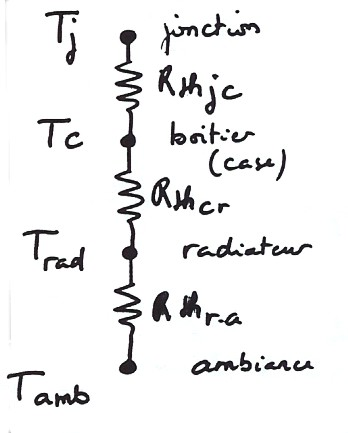 Tj jonction
Rthjc
Tc boitier
(case)
Rthcr
Trad radiateur
Rthr-a
ambiance
Tamb